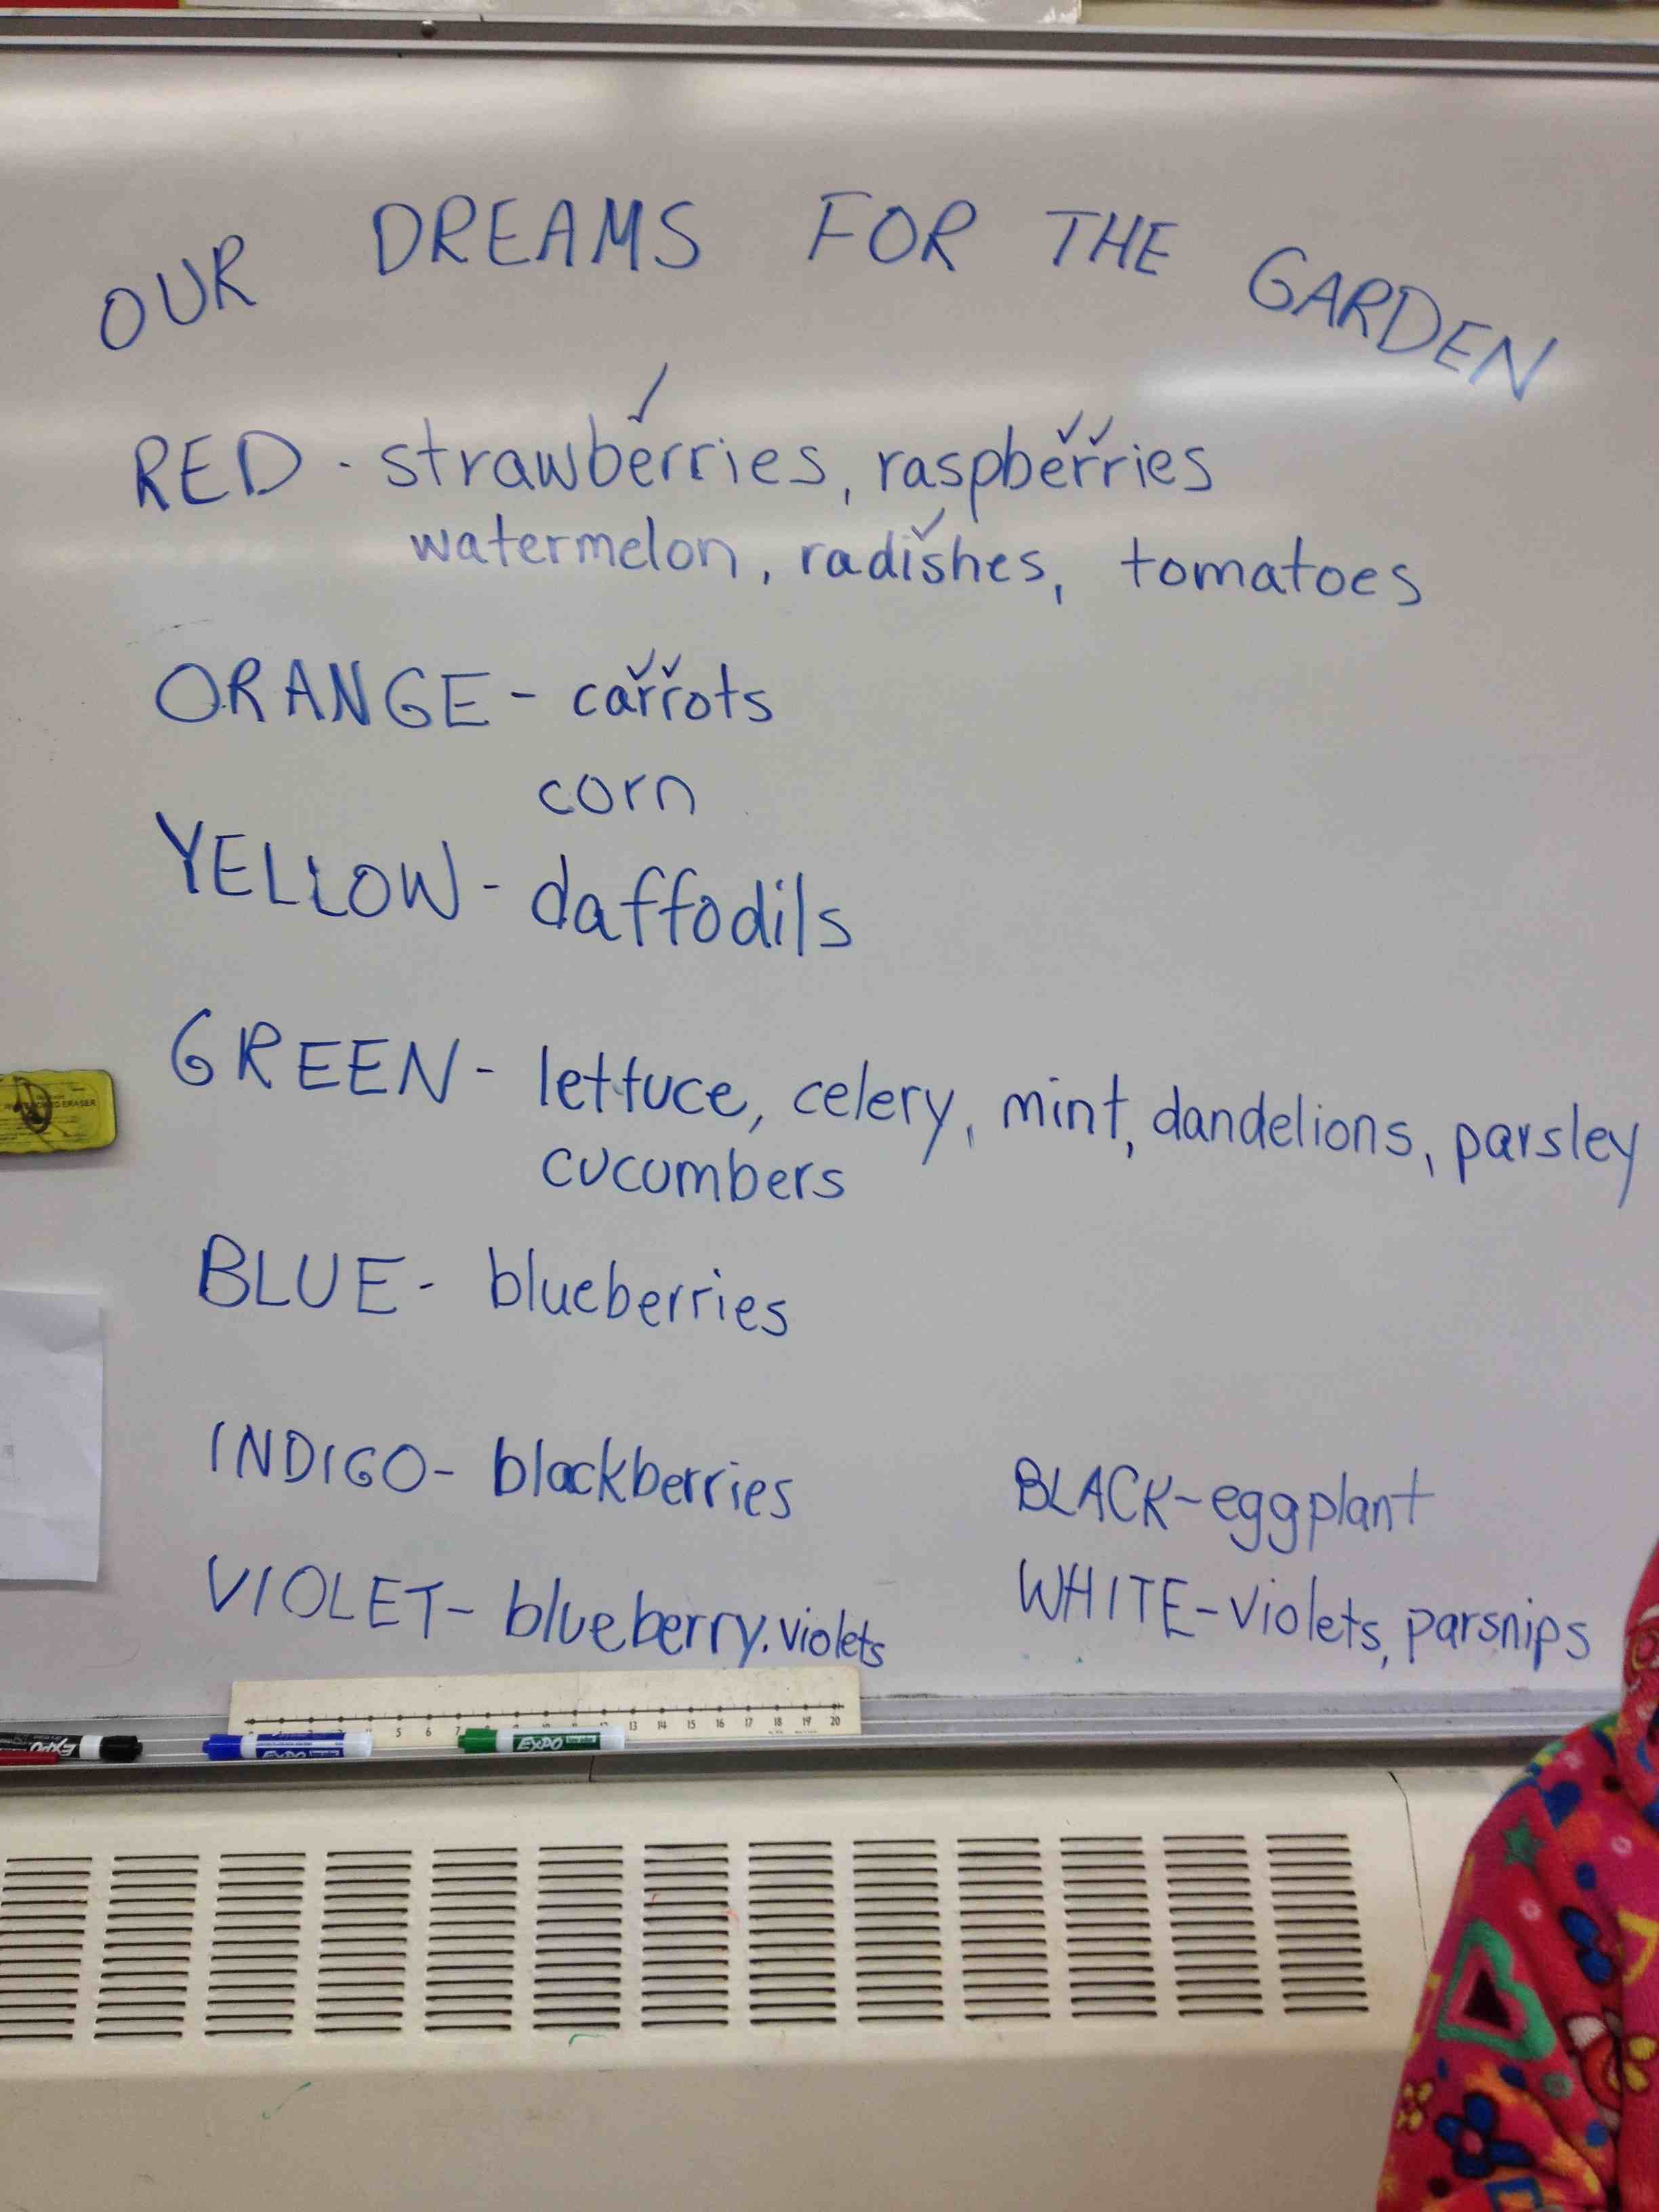 OUR DREAMS FOR THE GARDEN
RED - strawberries, raspberries
watermelon, radishes, tomatoes
ORANGE - carrots
corn
YELLOW - daffodils
GREEN - lettuce, celery, mint, dandelions, parsley
cucumbers
BLUE - blueberries
INDIGO - blackberries
BLACK - eggplant
VIOLET - blueberry. violets
WHITE - violets, parsnips
5 6 7 13 14 15 16 17 18 19 20
EXPO
EXPO
EXPO
ERASER